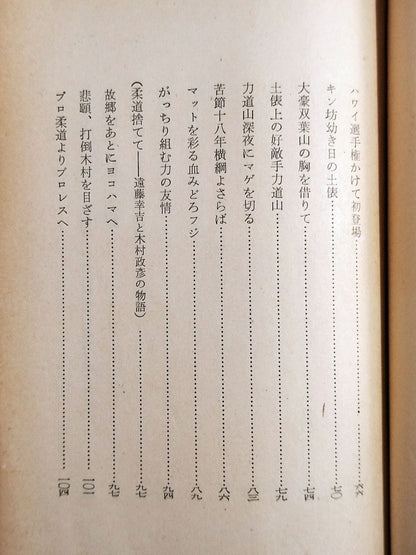 ハワイ選手権かけて初登場…………六六
キン坊幼き日の土俵…………七〇
大豪双葉山の胸を借りて…………七四
土俵上の好敵手力道山…………七九
力道山深夜にマゲを切る…………八三
苦節十八年横綱よさらば…………八六
マットを彩る血みどろフジ…………八九
がっちり組む力の友情…………九四
(柔道捨てて――遠藤幸吉と木村政彦の物語)…………九七
故郷をあとにヨコハマへ…………九七
悲願、打倒木村を目ざす…………一〇一
プロ柔道よりプロレスへ…………一〇四